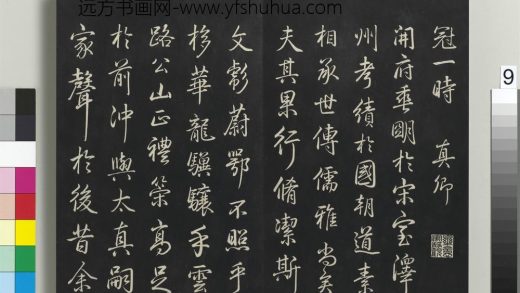 远方书画网-www.yfshuhua.com
冠一時　真卿
開府垂明於宋室澤
州考績於國朝道素
相承世傳儒雅尚矣
夫其果行脩潔斯
文彪蔚鄂不照乎
栘華龍驥驤乎雲
路公山正禮策高足
於前沖與太真嗣
家聲於後昔余
9